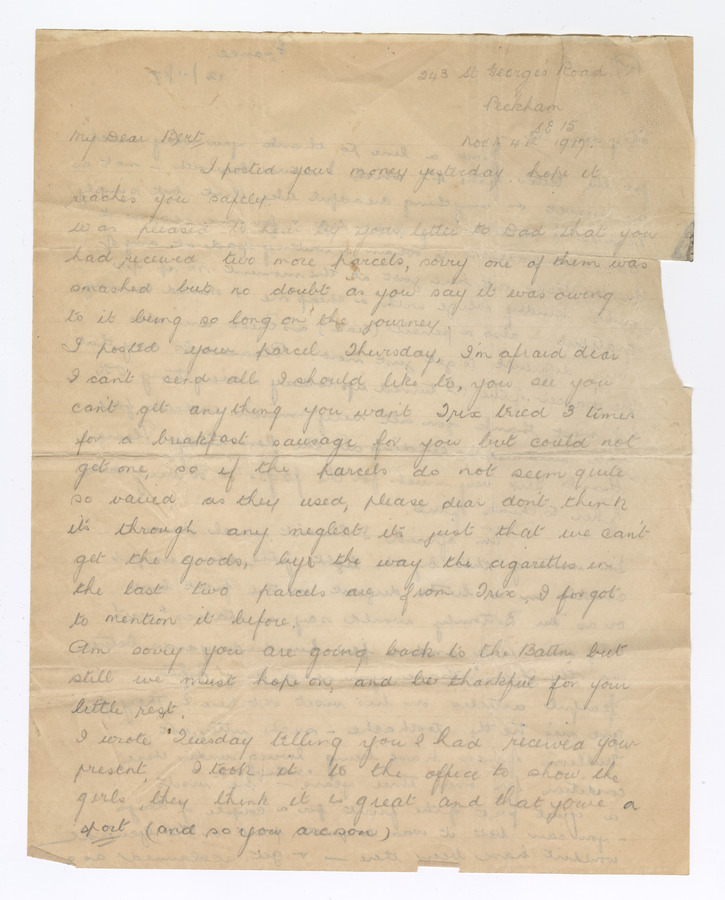 243 St Georges Road
Peckham
SE 15
Nov 4th 1917
My Dear Bert
I posted your money yesterday hope it
reaches you saftly.
Was pleased to hear by your letter to Dad that you
had received two more parcels, sorry one of them was
smashed but no doubt as you say it was owing
to it being so long on the journey
I posted your parcel Thursday, I'm afraid dear
I can't send all I should like to, you see you
can't get anything you want Trix tried 3 times
for a breakfast sausage for you but could not
get one, so if the parcels do not seem quite
so varied as they used, please dear don't think
it's through any neglect it's just that we can't
get the goods, bye the way the cigarettes in
the last two parcels are from Trix, I forgot
to mention it before.
Am sorry you are going back to the Battn but
still we must hope on, and be thankful for your
little rest.
I wrote Tuesday telling you I had received your
present, I took it to the office to show the
girls, they think it is great and that you're a
sport (and so you are son)